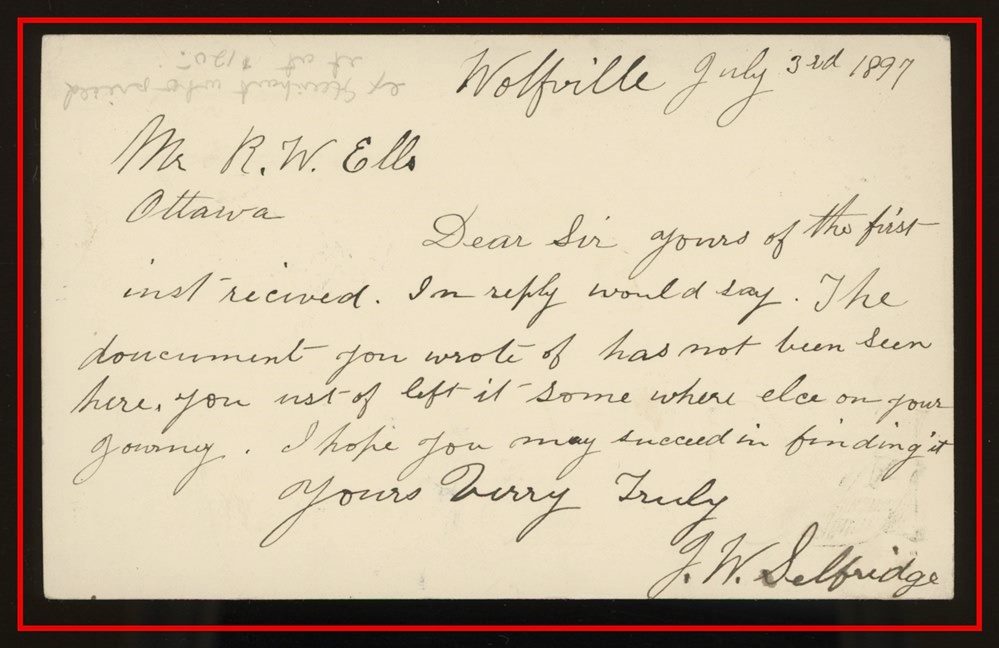 Wolfville July 3rd 1897
Mr R. W. Ells
Ottawa
Dear Sir yours of the first
inst recived. In reply would say. The
doucument you wrote of has not been seen
here. you ust of left it some where else on your
journey. I hope you may succeed in finding it
yours Verry Truly
J. W. Selfridge
ex Steinhart who priced
it at $120.